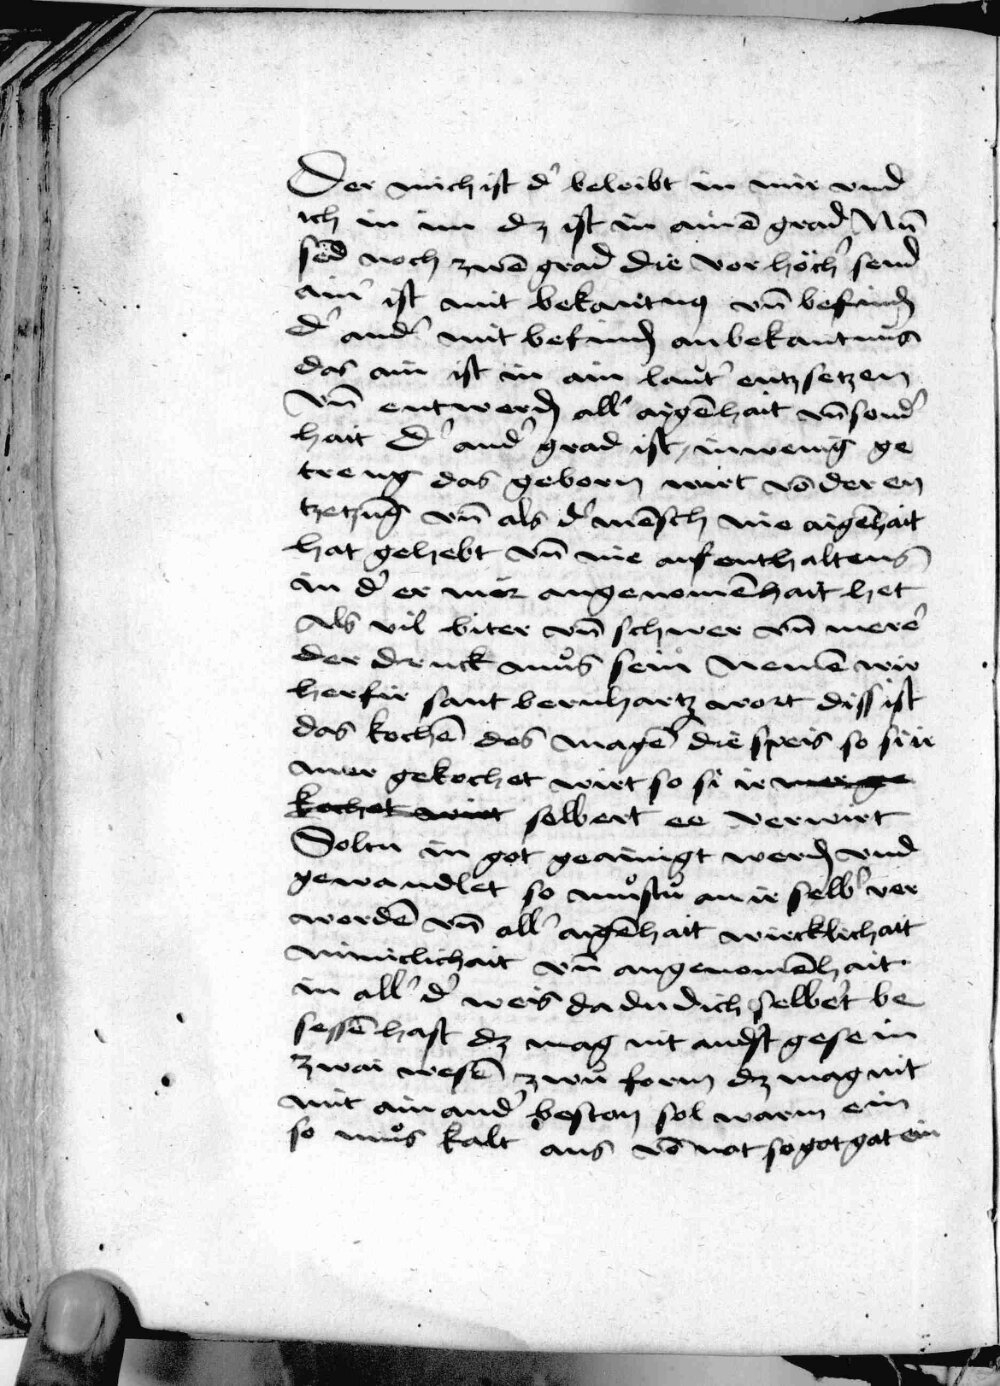 Der mich ist d' beleibt in mir vnd
ich in im dz ist in ainē grad Nūn
send noch zwē grad die vor höch' send
ain' ist mit bekantnus vn̄ befindē
d' and' mit befindē anbekantnus
das ain ist in ain laut' entzsetzen
Vn̄ entwerdē all' aigēhait vn̄ sond'
hait D' and' grad ist inwenig ge
treng das geborn wirt vō der en
tzetzūg vn̄ als d' mēsch nie aigēhait
hat gehebt vn̄ nie aufenthaltens
in d' er mer angenomēhait het
Als vil biter vn̄ schwer vn̄ merē
der druck můs sein Nemē wir
herfir sant bernhartz wort diss ist
das kochē des magē die speis so si ir
mer gekochet wirt so si ir mer ge
kochet wirt selbert ee verwirt
Soltu in got geainigt werdē vnd
gewandlet so můstu an ir selb' ver
wordē vn̄ all' aigēhait wircklichait
niniclichait vn̄ angenomēhait
in all' d' weis da du dich selbert be
sessē hast dz mag nit andst gesein
zwai wesē zwū form dz mag nit
mit ainand' besten sol warm ein
so můs kalt aus vō not so got gat ein